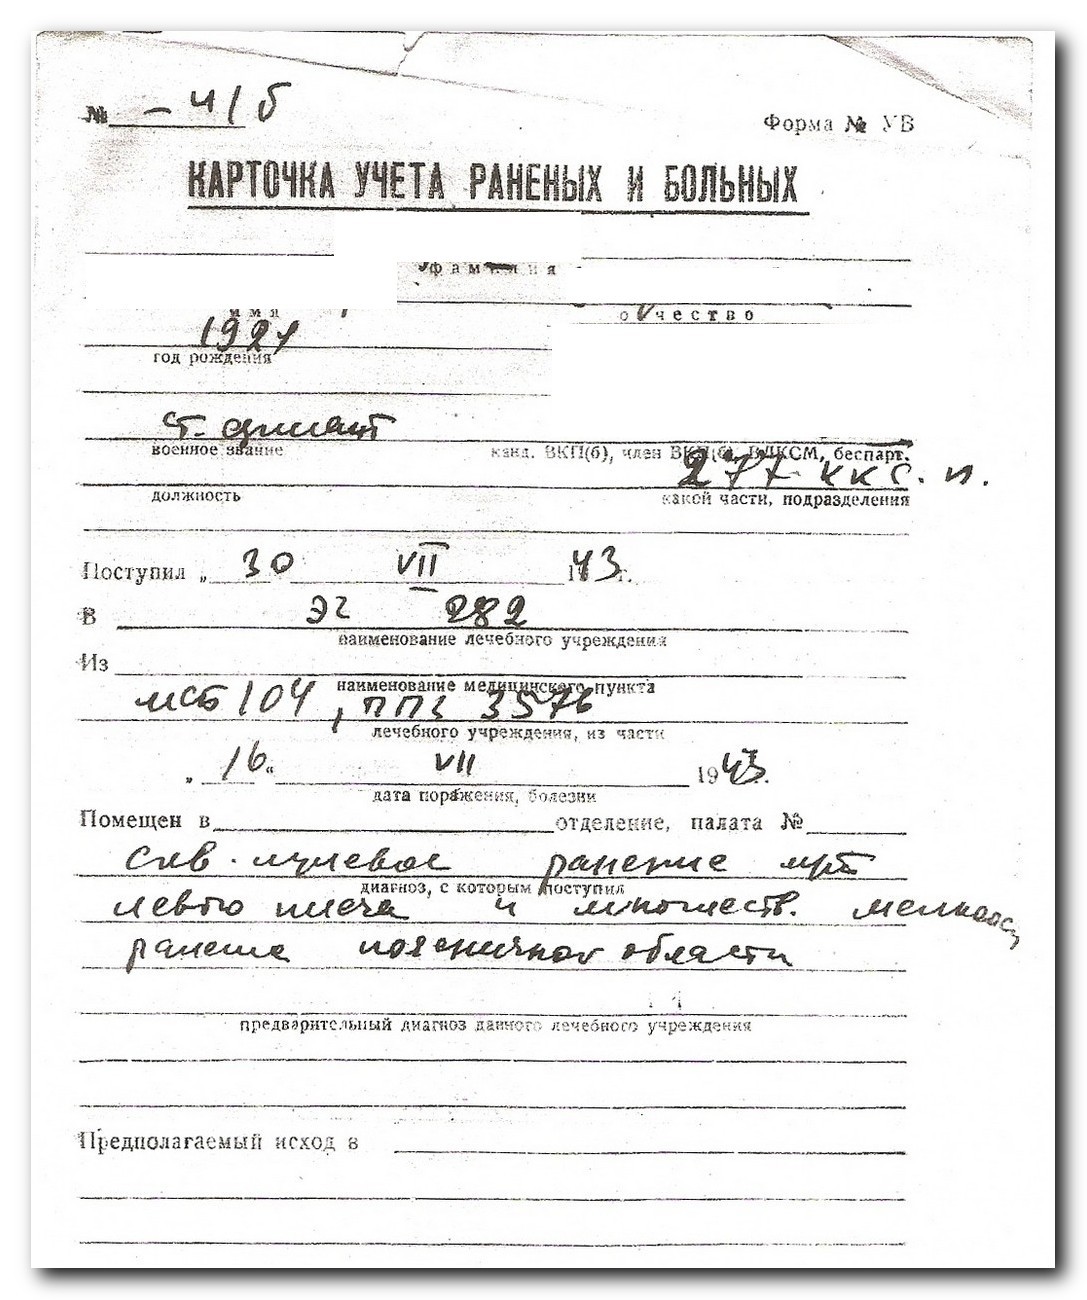 № – 4/б
Форма № УВ
КАРТОЧКА УЧЕТА РАНЕНЫХ И БОЛЬНЫХ
фамилия
имя
отчество
192
год рождения
ст.
военное звание
канд. ВКП(б), член ВКП(б), ВЛКСМ, беспарт.
277
должность
какой части, подразделения
Поступил „ 30 VII 1943 г.
В ЭГ 282
наименование лечебного учреждения
Из
наименование медицинского пункта
мсб 104, ппг 3576
лечебного учреждения, из части
„ 16 “ VII 1943.
дата поражения, болезни
Помещен в отделение, палата №
ранение
диагноз, с которым поступил
левого плеча и множеств.
ранение поясничной области
предварительный диагноз данного лечебного учреждения
Предполагаемый исход в